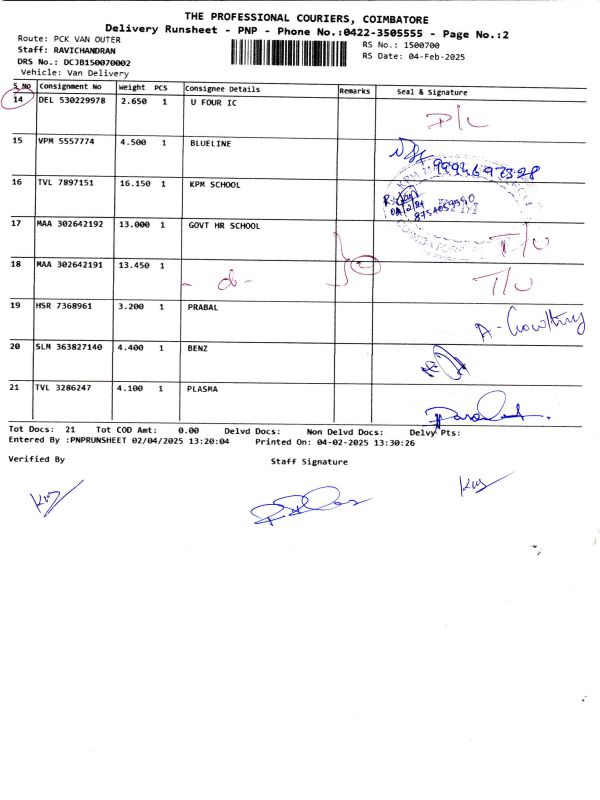 THE PROFESSIONAL COURIERS, COIMBATORE
Delivery Runsheet - PNP - Phone No.:0422-3505555 - Page No.:2
Route: PCK VAN OUTER
RS No.: 1500700
Staff: RAVICHANDRAN
RS Date: 04-Feb-2025
DRS No.: DCJB150070002
Vehicle: Van Delivery
S.No Consignment No Weight PCS Consignee Details Remarks Seal & Signature
14 DEL 530229978 2.650 1 U FOUR IC D/L
15 VPM 5557774 4.500 1 BLUELINE
16 TVL 7897151 16.150 1 KPM SCHOOL
17 MAA 302642192 13.000 1 GOVT HR SCHOOL T/U
18 MAA 302642191 13.450 1 - do - T/U
19 HSR 7368961 3.200 1 PRABAL A-Gowthry
20 SLM 363827140 4.400 1 BENZ
21 TVL 3286247 4.100 1 PLASMA
Tot Docs: 21 Tot COD Amt: 0.00 Delvd Docs: Non Delvd Docs: Delvy Pts:
Entered By :PNPRUNSHEET 02/04/2025 13:20:04 Printed On: 04-02-2025 13:30:26
Verified By Staff Signature